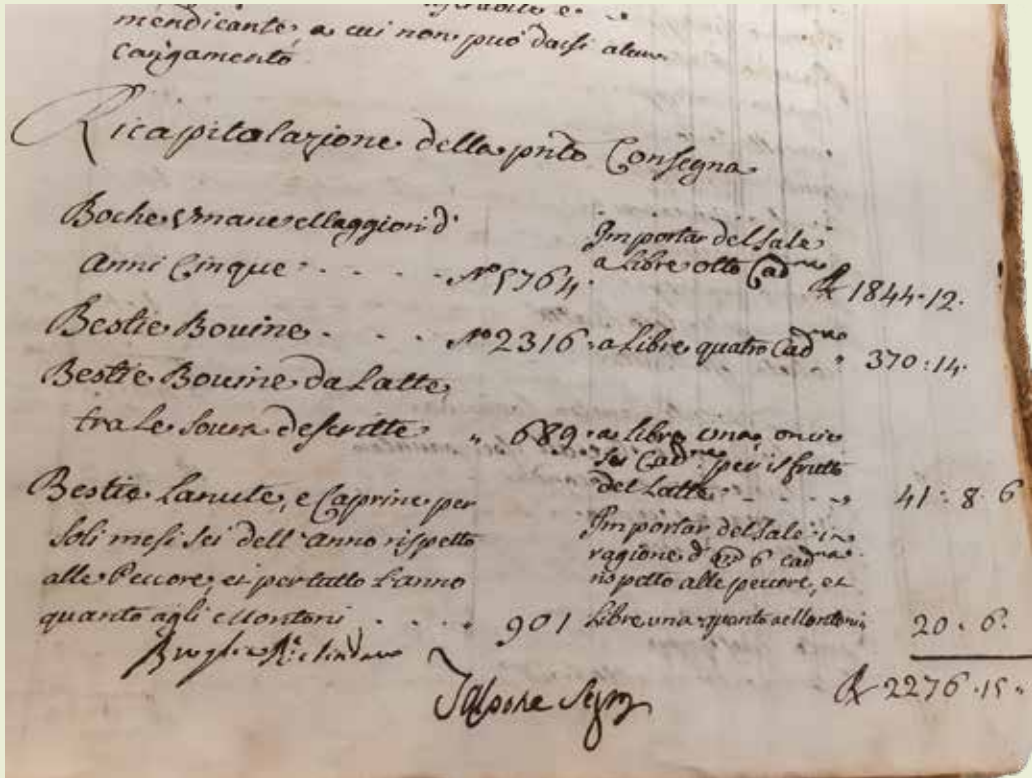 mendicante, a cui non può darsi alcun
carigamento
Ricapitolazione della pnte Consegna
Boche Umane Maggiori d'
Anni Cinque . . . . . N° 5764.
Importar del Sale
a Libre otto Cad.na R 1844.12.
Bestie Bovine . . . . N° 2316 . a Libre quatro Cad.na " 370:14.
Bestie Bovine da Latte,
tra le Soura descritte " 689 . a Libre una, oncie
sei Cad.na per il frutto
del Latte . . . . " 41:8 6
Bestie Lanute, e Caprine per
soli mesi sei dell'anno rispetto
alle Pecore, et per tutto l'anno
quanto agli Montoni . . . . 901
Importar del Sale in
ragione d' 6 cad.na
rispetto alle pecore, et
Libre una quanto a Montoni 20. 6.
R 2276.15.